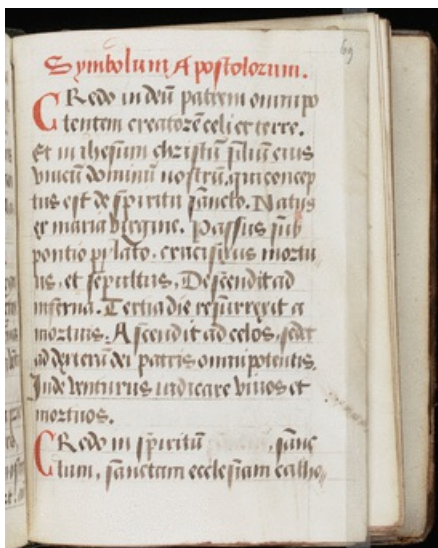 69
Symbolum Apostolorum.
CRedo in deū patrem omnipo
tentem creatorē celi et terre.
Et in ihesum christū filiū eius
vnicū dominū nostrū. qui concep
tus est de spiritu sancto. Natus
ex maria virgine. Passus sub
pontio pylato. crucifixus mortu
us, et sepultus. Descendit ad
inferna. Tertia die resurrexit a
mortuis. Ascendit ad celos, sedet
ad dexterā dei patris omnipotentis.
Inde venturus iudicare viuos et
mortuos.
CRedo in spiritū sanc
tum, sanctam ecclesiam catho